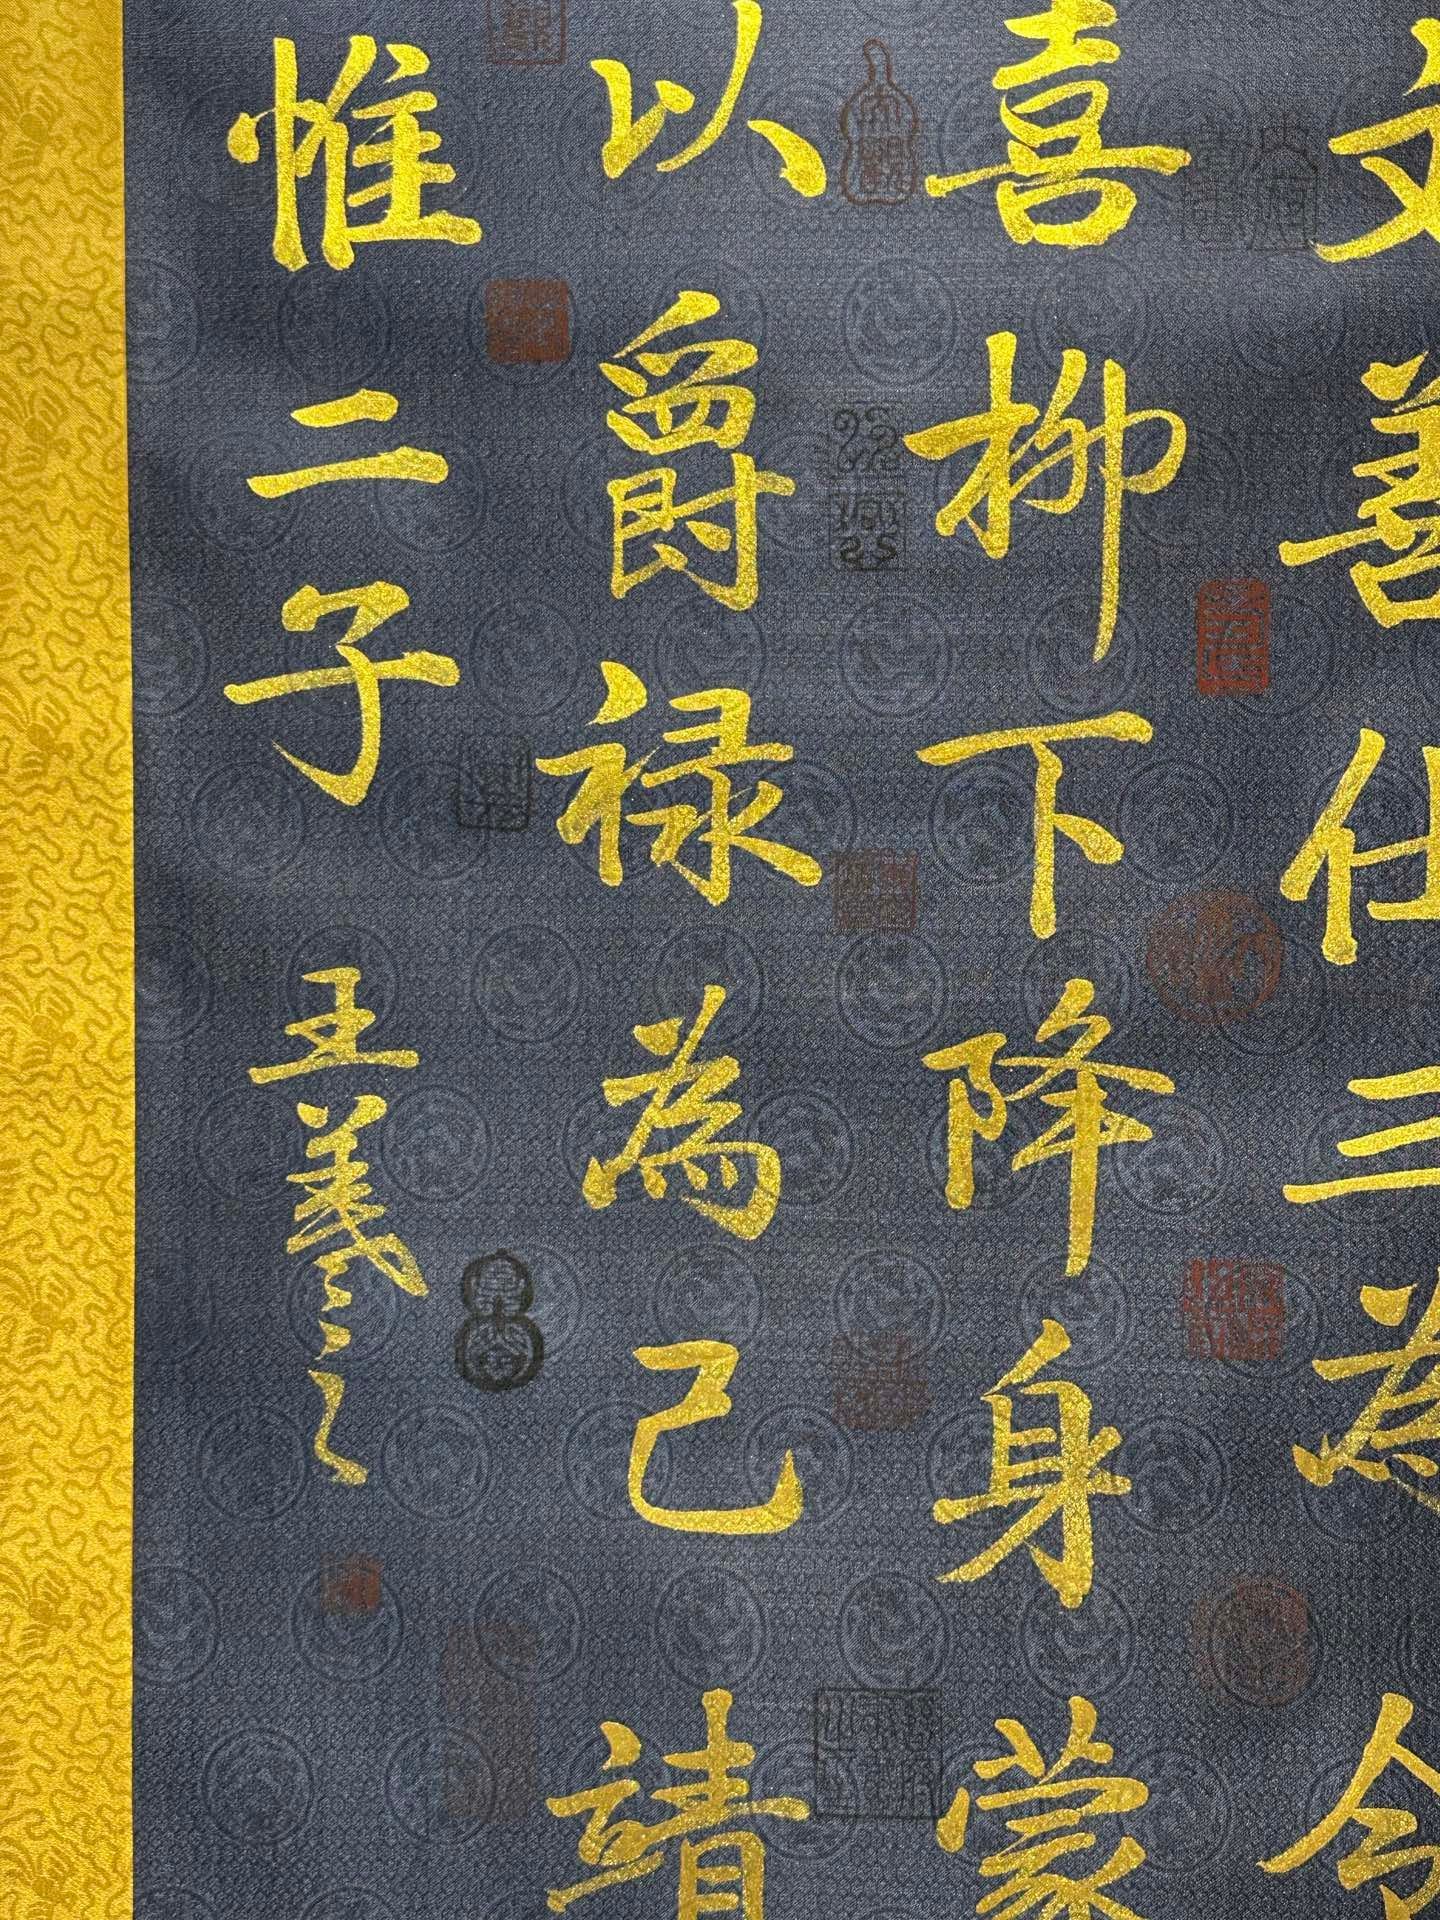 文善仕三為令
喜柳下降身蒙
以爵禄為己靖
惟二子
王羲之